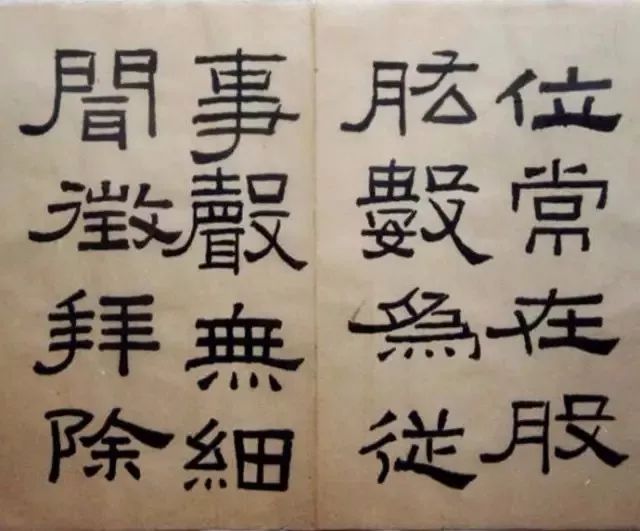 位常在股
肱數爲從
事聲無細
聞徵拜除